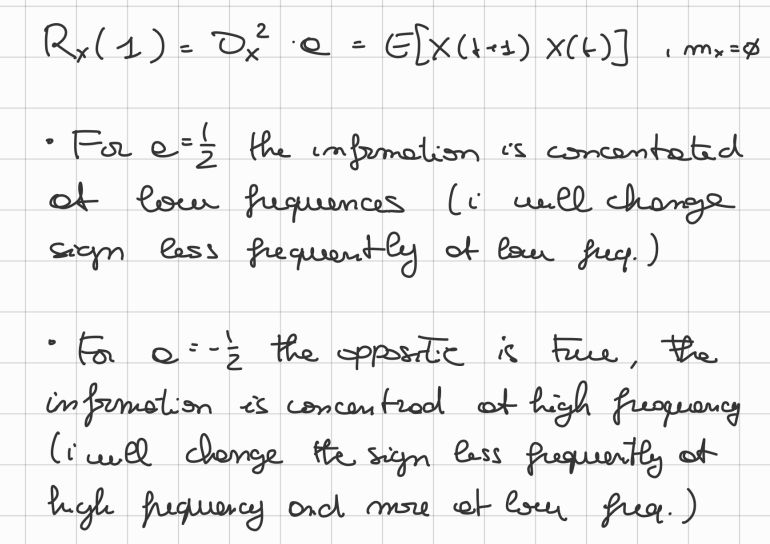 Rx(1) = σx² · a = E[X(t+1) X(t)] , mx = ø
· For a = 1/2 the information is concentrated
at low frequences (i will change
sign less frequently at low freq.)
· For a = -1/2 the opposite is true, the
information is concentrad at high frequency
(i will change the sign less frequently at
high frequency and more at low freq.)